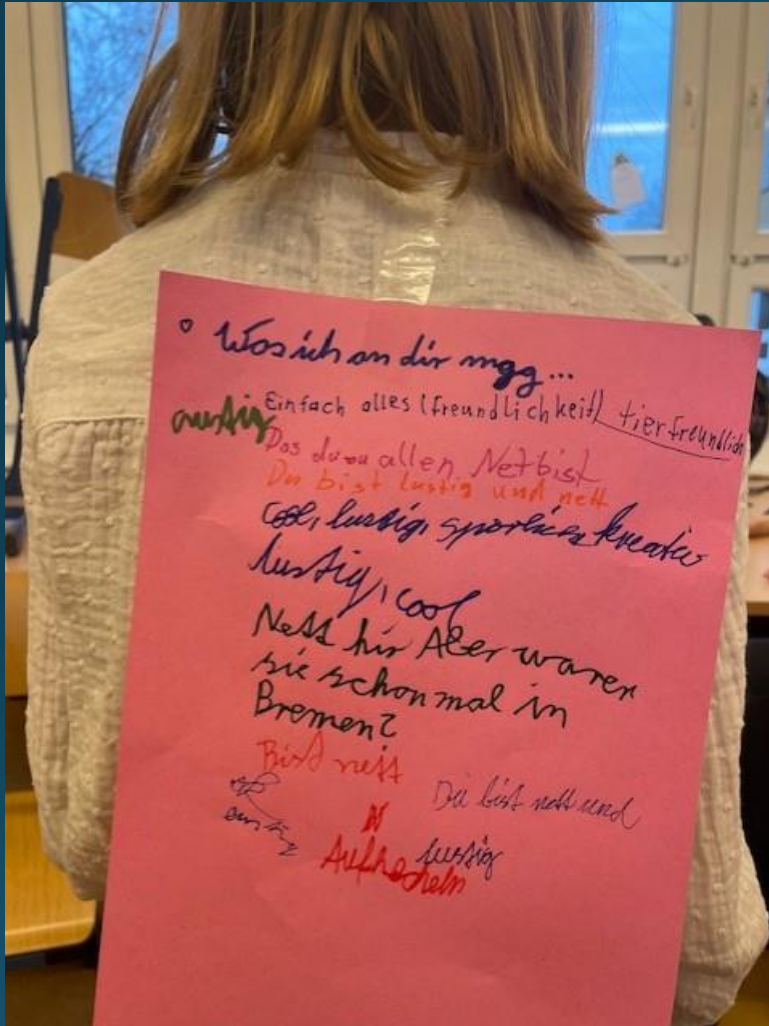 Was ich an dir mag...
Einfach alles (Freundlichkeit) tierfreundlich
Das du zu allen Net bist
Du bist lustig und nett
cool, lustig, sportlich, kreativ
lustig, cool
Nett hir Aber waren
sie schon mal in
Bremen?
Bist nett
Du bist nett und
lustig